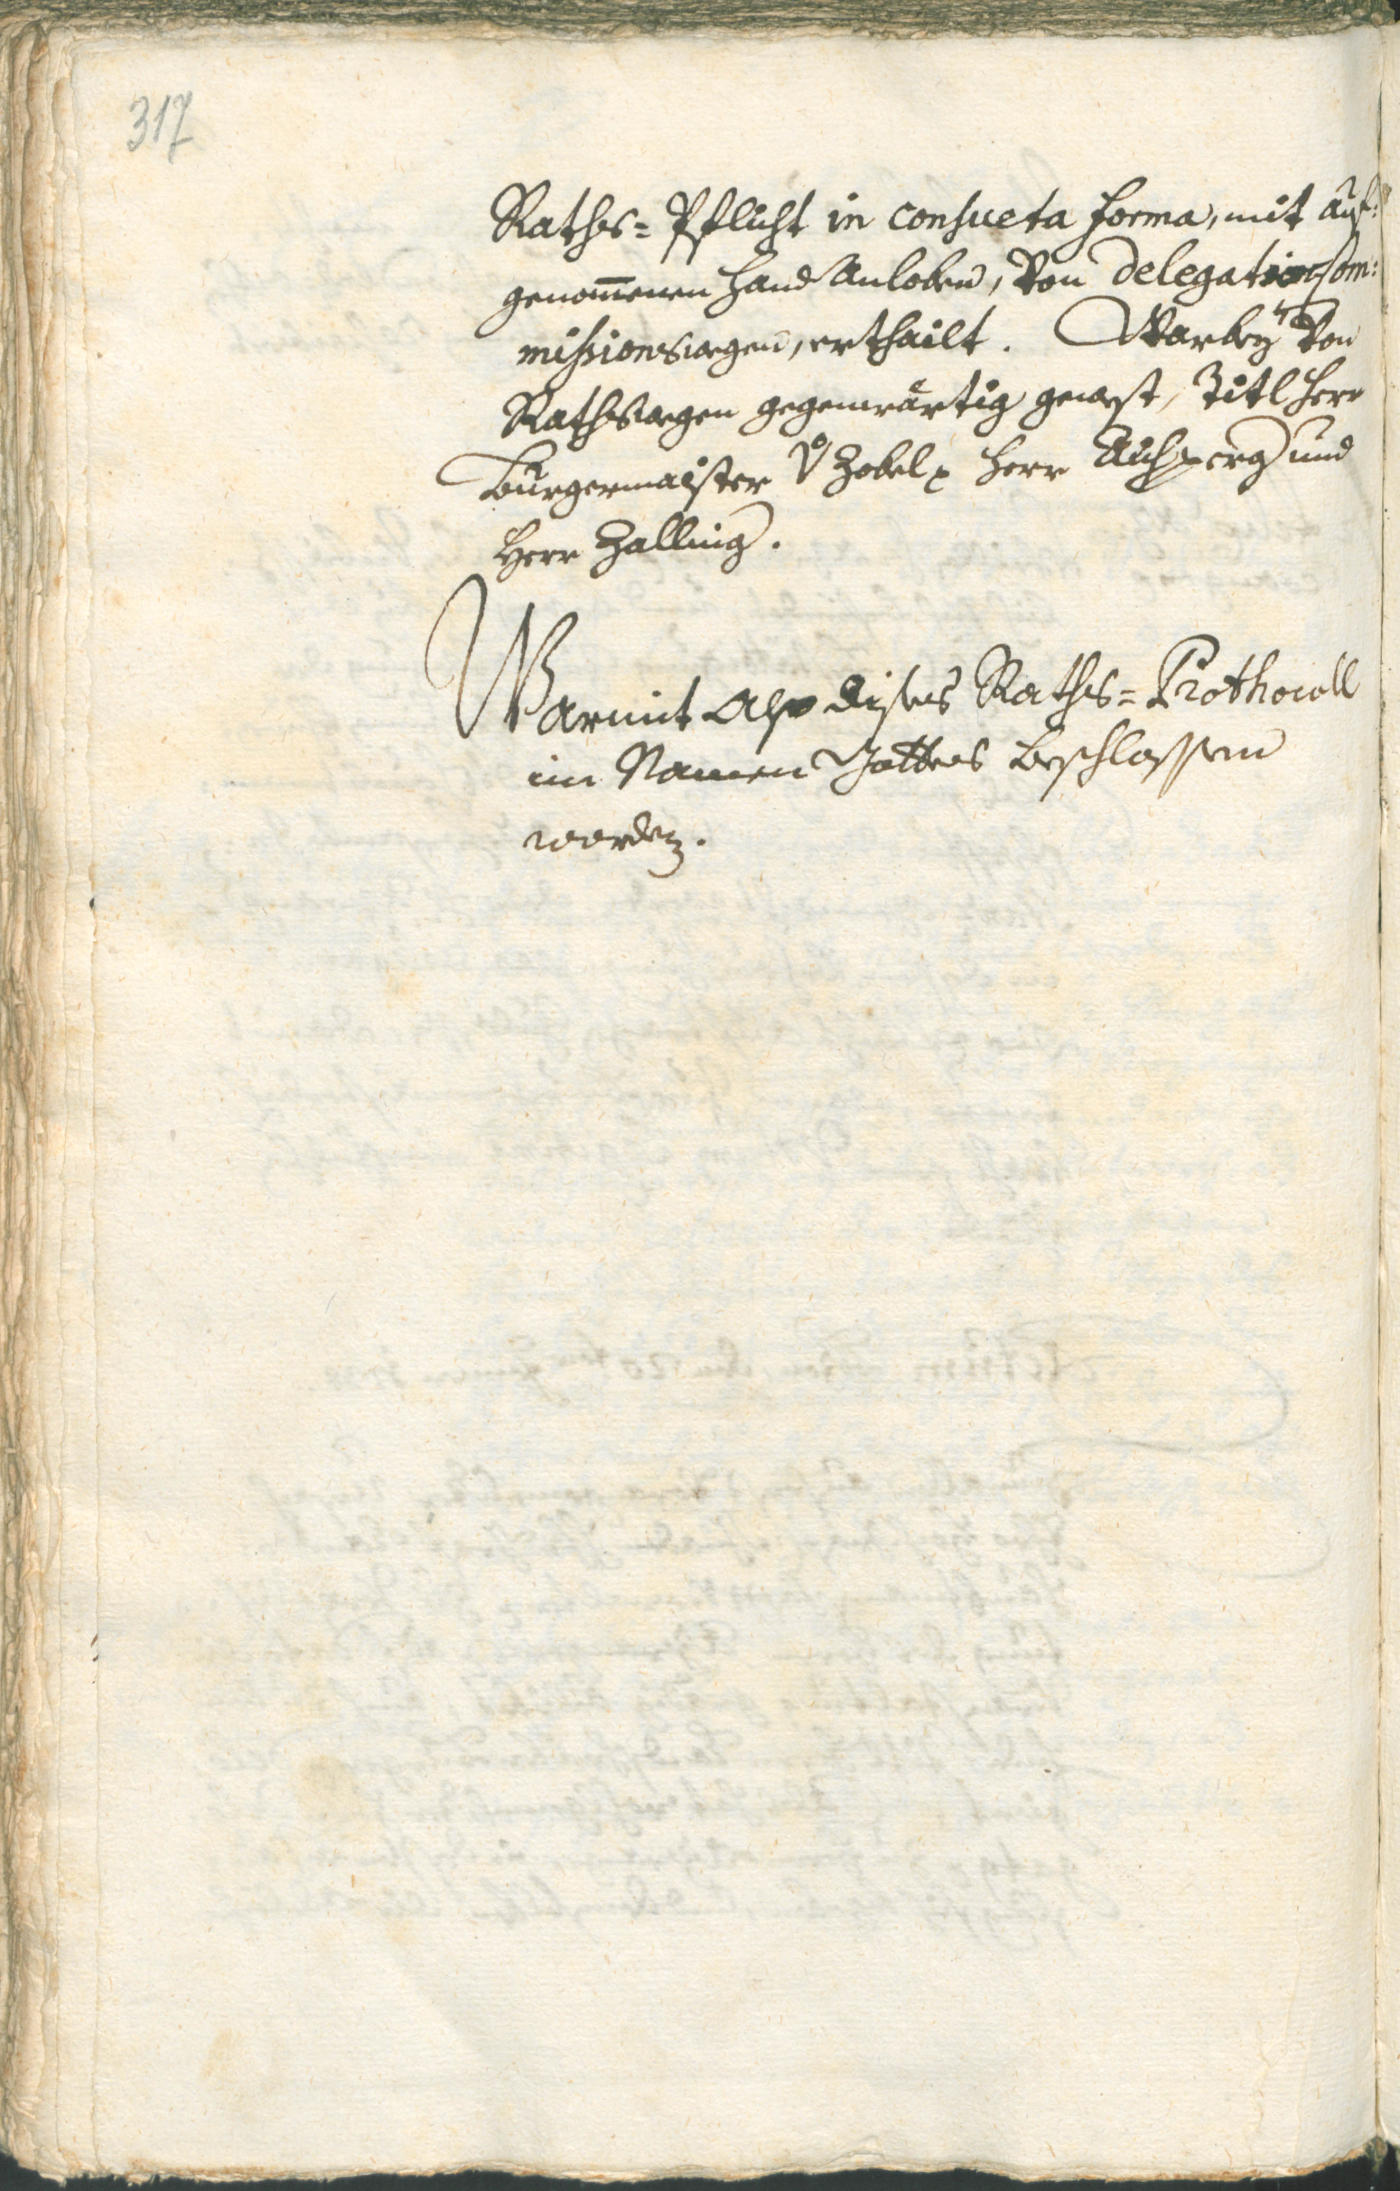 317
Raths= Pflicht in consueta forma, mit auf:
genom̄enen Handanloben, Von Delegations Com:
missionswegen, erthailt. Warbey Von
Rathswegen gegenwärtig gewest, Titl Herr
Burgermaister V Zobel, Herr Auhperg und
Herr Zalling.
Warmit also dises Raths= Prothocoll
im Namen Gottes beschlossen
worden.